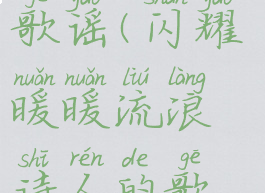 gē yáo shǎn yào
歌谣(闪耀
nuǎn nuǎn liú làng
暖暖流浪
shī rén de gē
诗人的歌